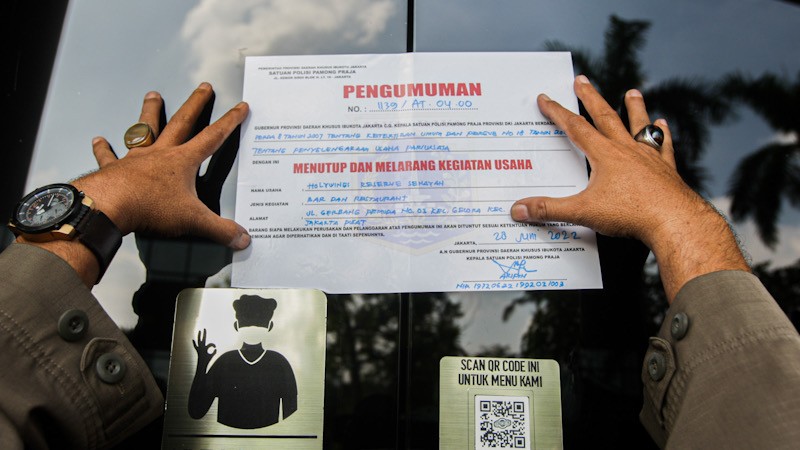 PEMERINTAH PROVINSI DAERAH KHUSUS IBUKOTA JAKARTA
SATUAN POLISI PAMONG PRAJA
JAKARTA
PENGUMUMAN
NO. : 1139 / AT. 04.00
GUBERNUR PROVINSI DAERAH KHUSUS IBUKOTA JAKARTA C.Q. KEPALA SATUAN POLISI PAMONG PRAJA PROVINSI DKI JAKARTA BERDASARKAN
8 TAHUN 2007 TENTANG KETERTIBAN UMUM DAN PERGUB NO 18 TAHUN
TENTANG PENYELENGGARAAN USAHA PARIWISATA
DENGAN INI
MENUTUP DAN MELARANG KEGIATAN USAHA
NAMA USAHA : HOLYWINGS RESERVE SENAYAN
JENIS KEGIATAN : BAR DAN RESTAURANT
ALAMAT : JL. GERBANG PEMUDA NO. 02 KEL. GELORA KEC.
JAKARTA PUSAT
BARANG SIAPA MELAKUKAN PERUSAKAN DAN PELANGGARAN ATAS PENGUMUMAN INI DITUNTUT SESUAI KETENTUAN
DEMIKIAN AGAR DIPERHATIKAN DAN DI TAATI SEPENUHNYA.
JAKARTA, 28 JUNI 2022
A.N GUBERNUR PROVINSI DAERAH KHUSUS IBUKOTA JAKARTA
KEPALA SATUAN POLISI PAMONG PRAJA
ARIFIN
SCAN QR CODE INI
UNTUK MENU KAMI